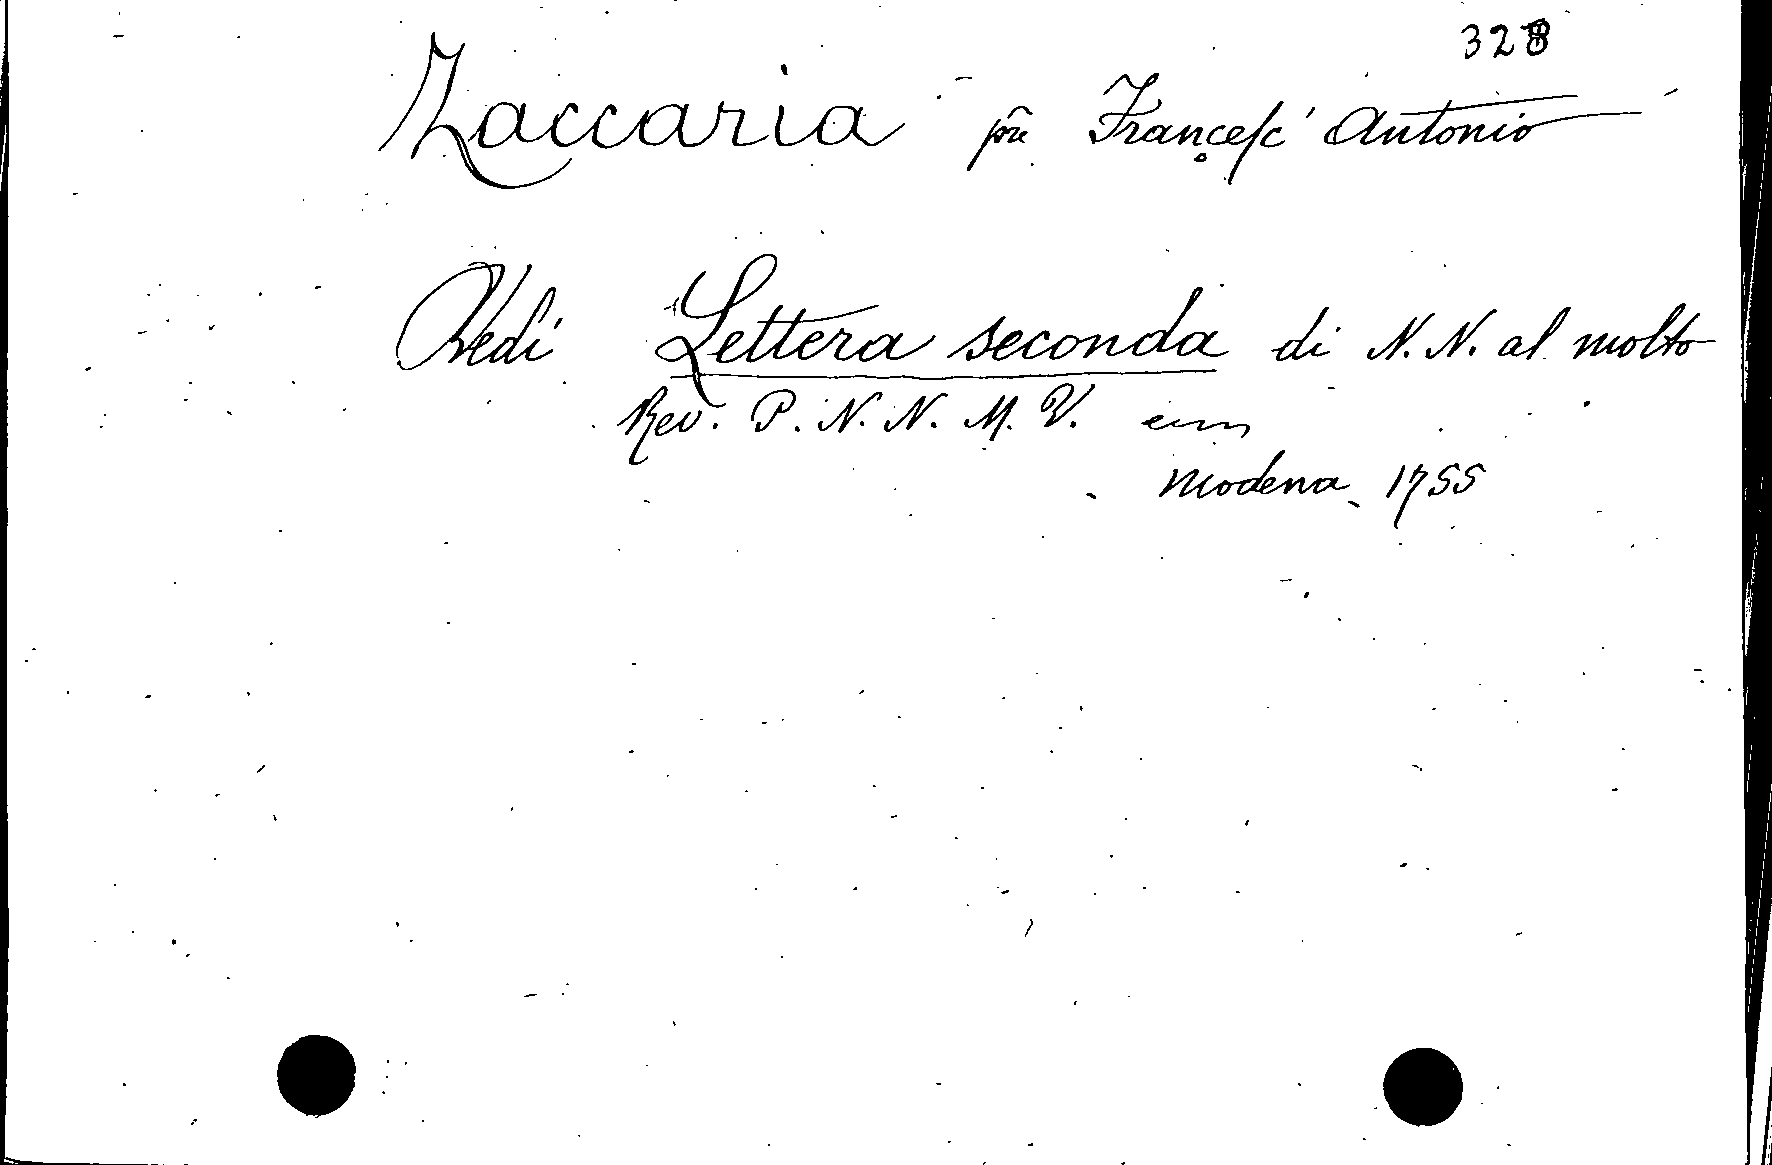 328
Zaccaria p̃re Francesc' Antonio
Vedi Lettera seconda di N. N. al molto
Rev. P. N. N. M. V.
Modena 1755